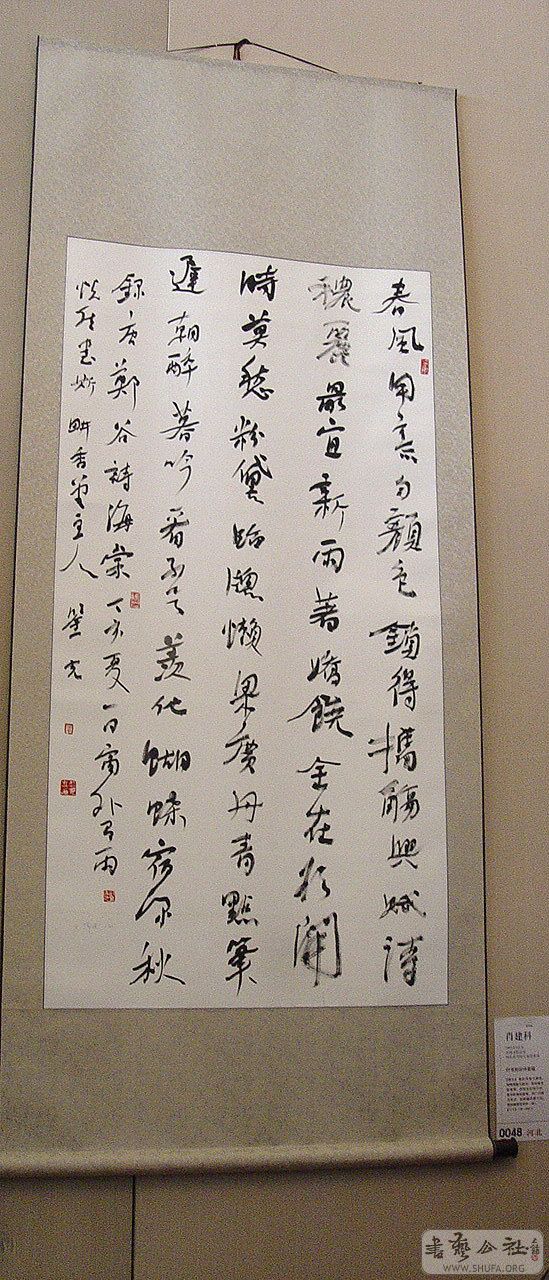 春風用意勻顏色鎖得攜觴與賦詩
穠麗最宜新雨著嬌饒全在欲開
時莫愁粉黛臨窗懶梁廣丹青點筆
遲朝醉暮吟看不足羨化蝴蝶宿深秋
錄唐鄭谷詩海棠丁亥夏一日窗外有雨
書於耕香堂主人
肖建科
0048 河北
書藝公社
WWW.SHUFA.ORG